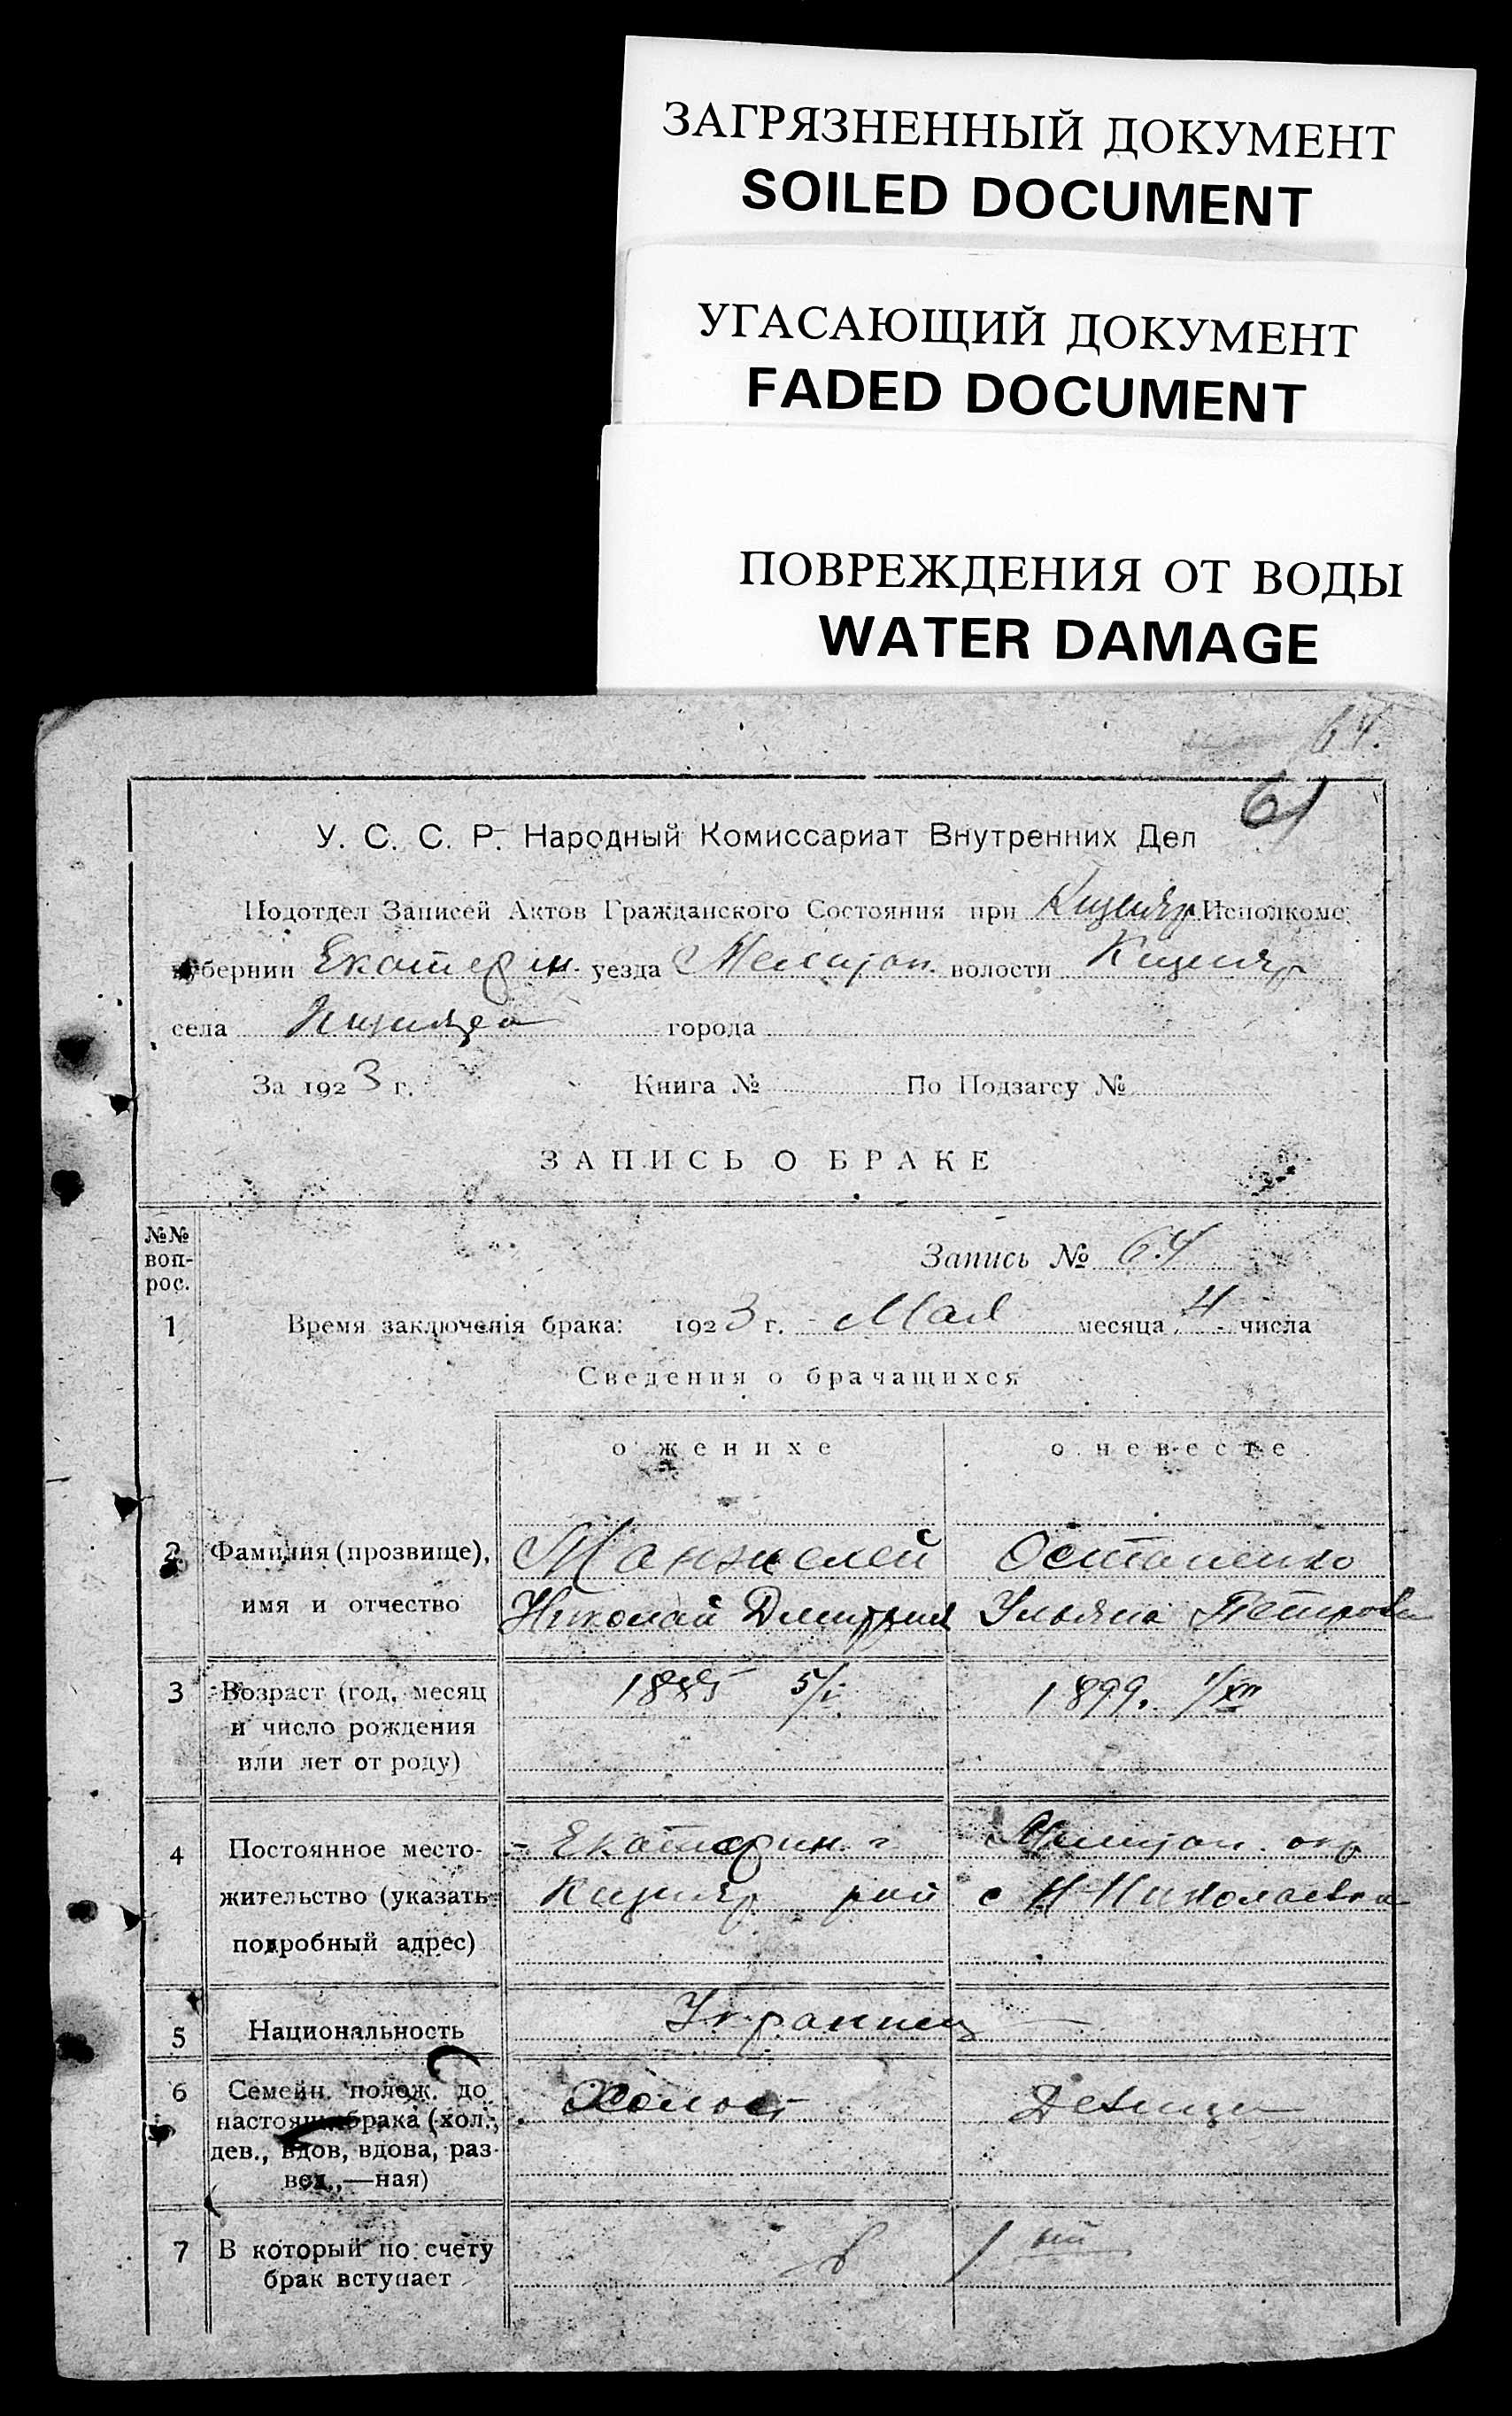 ЗАГРЯЗНЕННЫЙ ДОКУМЕНТ
SOILED DOCUMENT
УГАСАЮЩИЙ ДОКУМЕНТ
FADED DOCUMENT
ПОВРЕЖДЕНИЯ ОТ ВОДЫ
WATER DAMAGE
64.
61
У. С. С. Р. Народный Комиссариат Внутренних Дел
Подотдел Записей Актов Гражданского Состояния при Исполкоме
губернии Екатерин. уезда волости
села города
За 1923 г. Книга № По Подзагсу №
ЗАПИСЬ О БРАКЕ
№№ воп-рос.
Запись № 64
1 Время заключенія брака: 1923 г. Мая месяца 4 числа
Сведения о брачащихся
о женихе о невесте
2 Фамилия (прозвище), Манжелей Остапенко
имя и отчество Николай Ульяна
3 Возраст (год, месяц 5/I 1899. 1/XII
и число рождения
или лет от роду)
4 Постоянное место- Екатерин. г окр
жительство (указать рай с Н-Николаевка
подробный адрес)
5 Национальность Украинец
6 Семейн. полож. до Холост Девица
настоящ. брака (хол.,
дев., вдов, вдова, раз-
вед.,—ная)
7 В который по счету в 1ый
брак вступает